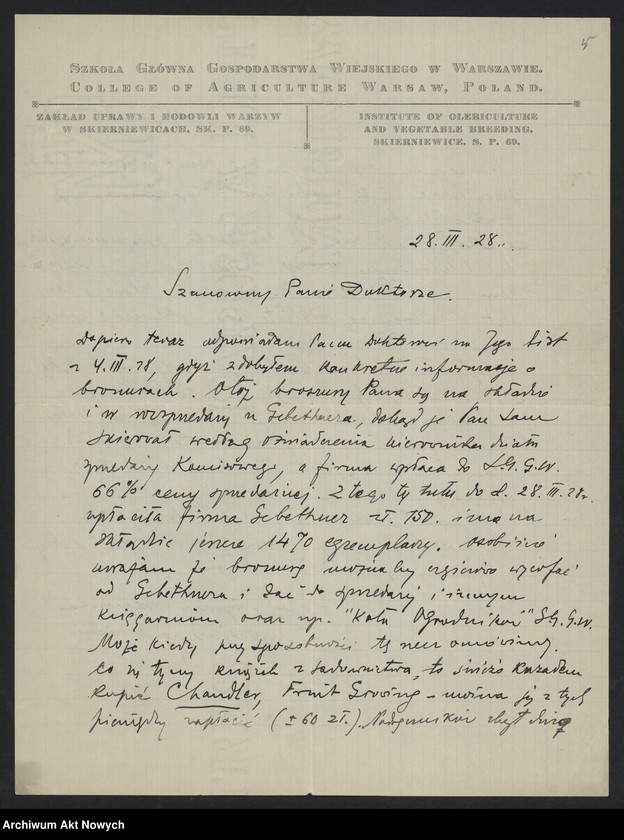 5
SZKOŁA GŁÓWNA GOSPODARSTWA WIEJSKIEGO W WARSZAWIE.
COLLEGE OF AGRICULTURE WARSAW, POLAND.
ZAKŁAD UPRAWY I HODOWLI WARZYW
W SKIERNIEWICACH, SK. P. 69.
INSTITUTE OF OLERICULTURE
AND VEGETABLE BREEDING,
SKIERNIEWICE, S. P. 69.
28. III. 28..
Szanowny Panie Doktorze.
Dopiero teraz odpowiadam Panu Doktorowi na Jego list
z 4. III. 28, gdyż zdobyłem konkretne informacje o
broszurach. Otóż broszury Pana są na składzie
i w rozsprzedaży u Gebethnera, dokąd je Pan sam
skierował według oświadczenia kierownika działu
sprzedaży Komisowego, a firma wpłaca do S.G.G.W.
66% ceny sprzedażnej. Z tego tytułu do d. 28. III. 28 r.
wpłaciła firma Gebethner zł. 150. i ma na
składzie jeszcze 1470 egzemplarzy. Osobiście
uważam że broszury można by częściowo wycofać
od Gebethnera i dać do sprzedaży i innym
księgarniom oraz np. "Koła Ogrodników" S.G.G.W.
Może kiedy przy sposobności tę rzecz omówimy.
Co się tyczy książek z sadownictwa, to świeżo kazałem
kupić Chandler, Fruit Growing - można ją z tych
pieniędzy zapłacić (± 60 zł.). zbyt dużo
Archiwum Akt Nowych